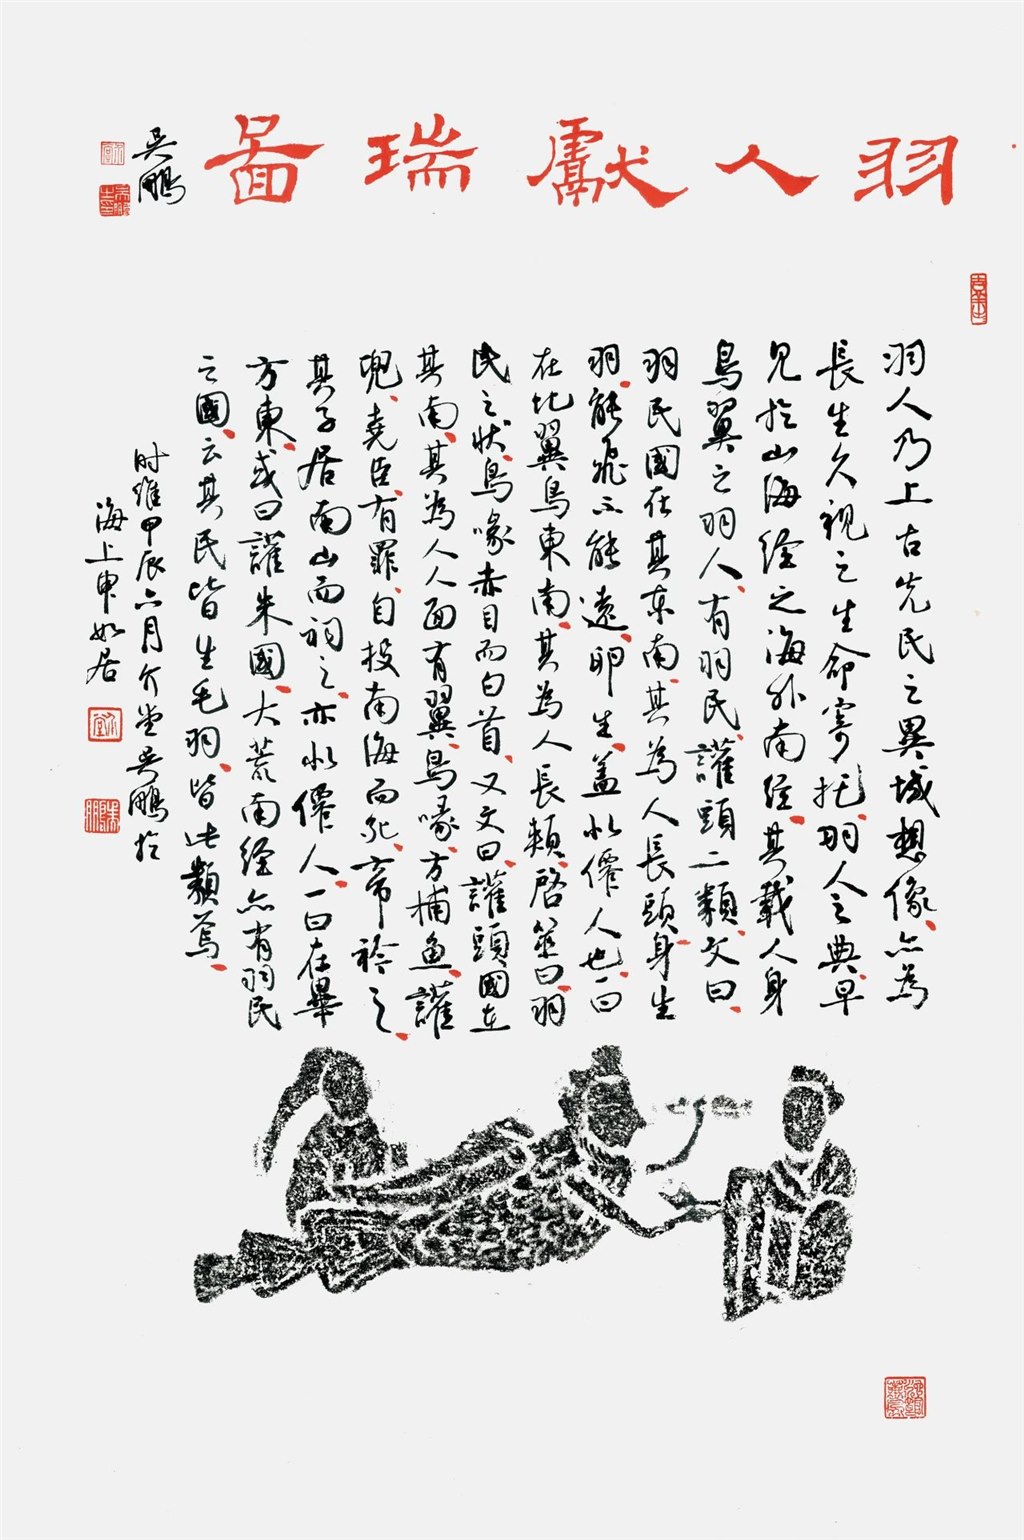 羽人獻瑞啚
吳鵬
羽人乃上古先民之異域想像、亦為
長生久視之生命寄托、羽人之典、早
見於山海經之海外南經、其載人身
鳥翼之羽人、有羽民、讙頭二類、文曰、
羽民國在其东南、其為人長頭、身生
羽、能飛不能遠、卵生、盖似僊人也、一曰
在比翼鳥東南、其為人長頰、启筮曰、羽
民之狀、鳥喙赤目而白首、又文曰、讙頭國在
其南、其為人人面有翼、鳥喙、方捕魚、讙
兜、堯臣、有罪、自投南海而死、帝矜之、
其子居南山而祠之、亦似僊人、一曰在畢
方東、或曰讙朱國、大荒南经亦有羽民
之國、云其民皆生毛羽、皆此類焉、
时維甲辰六月介堂吳鵬於
海上申如居